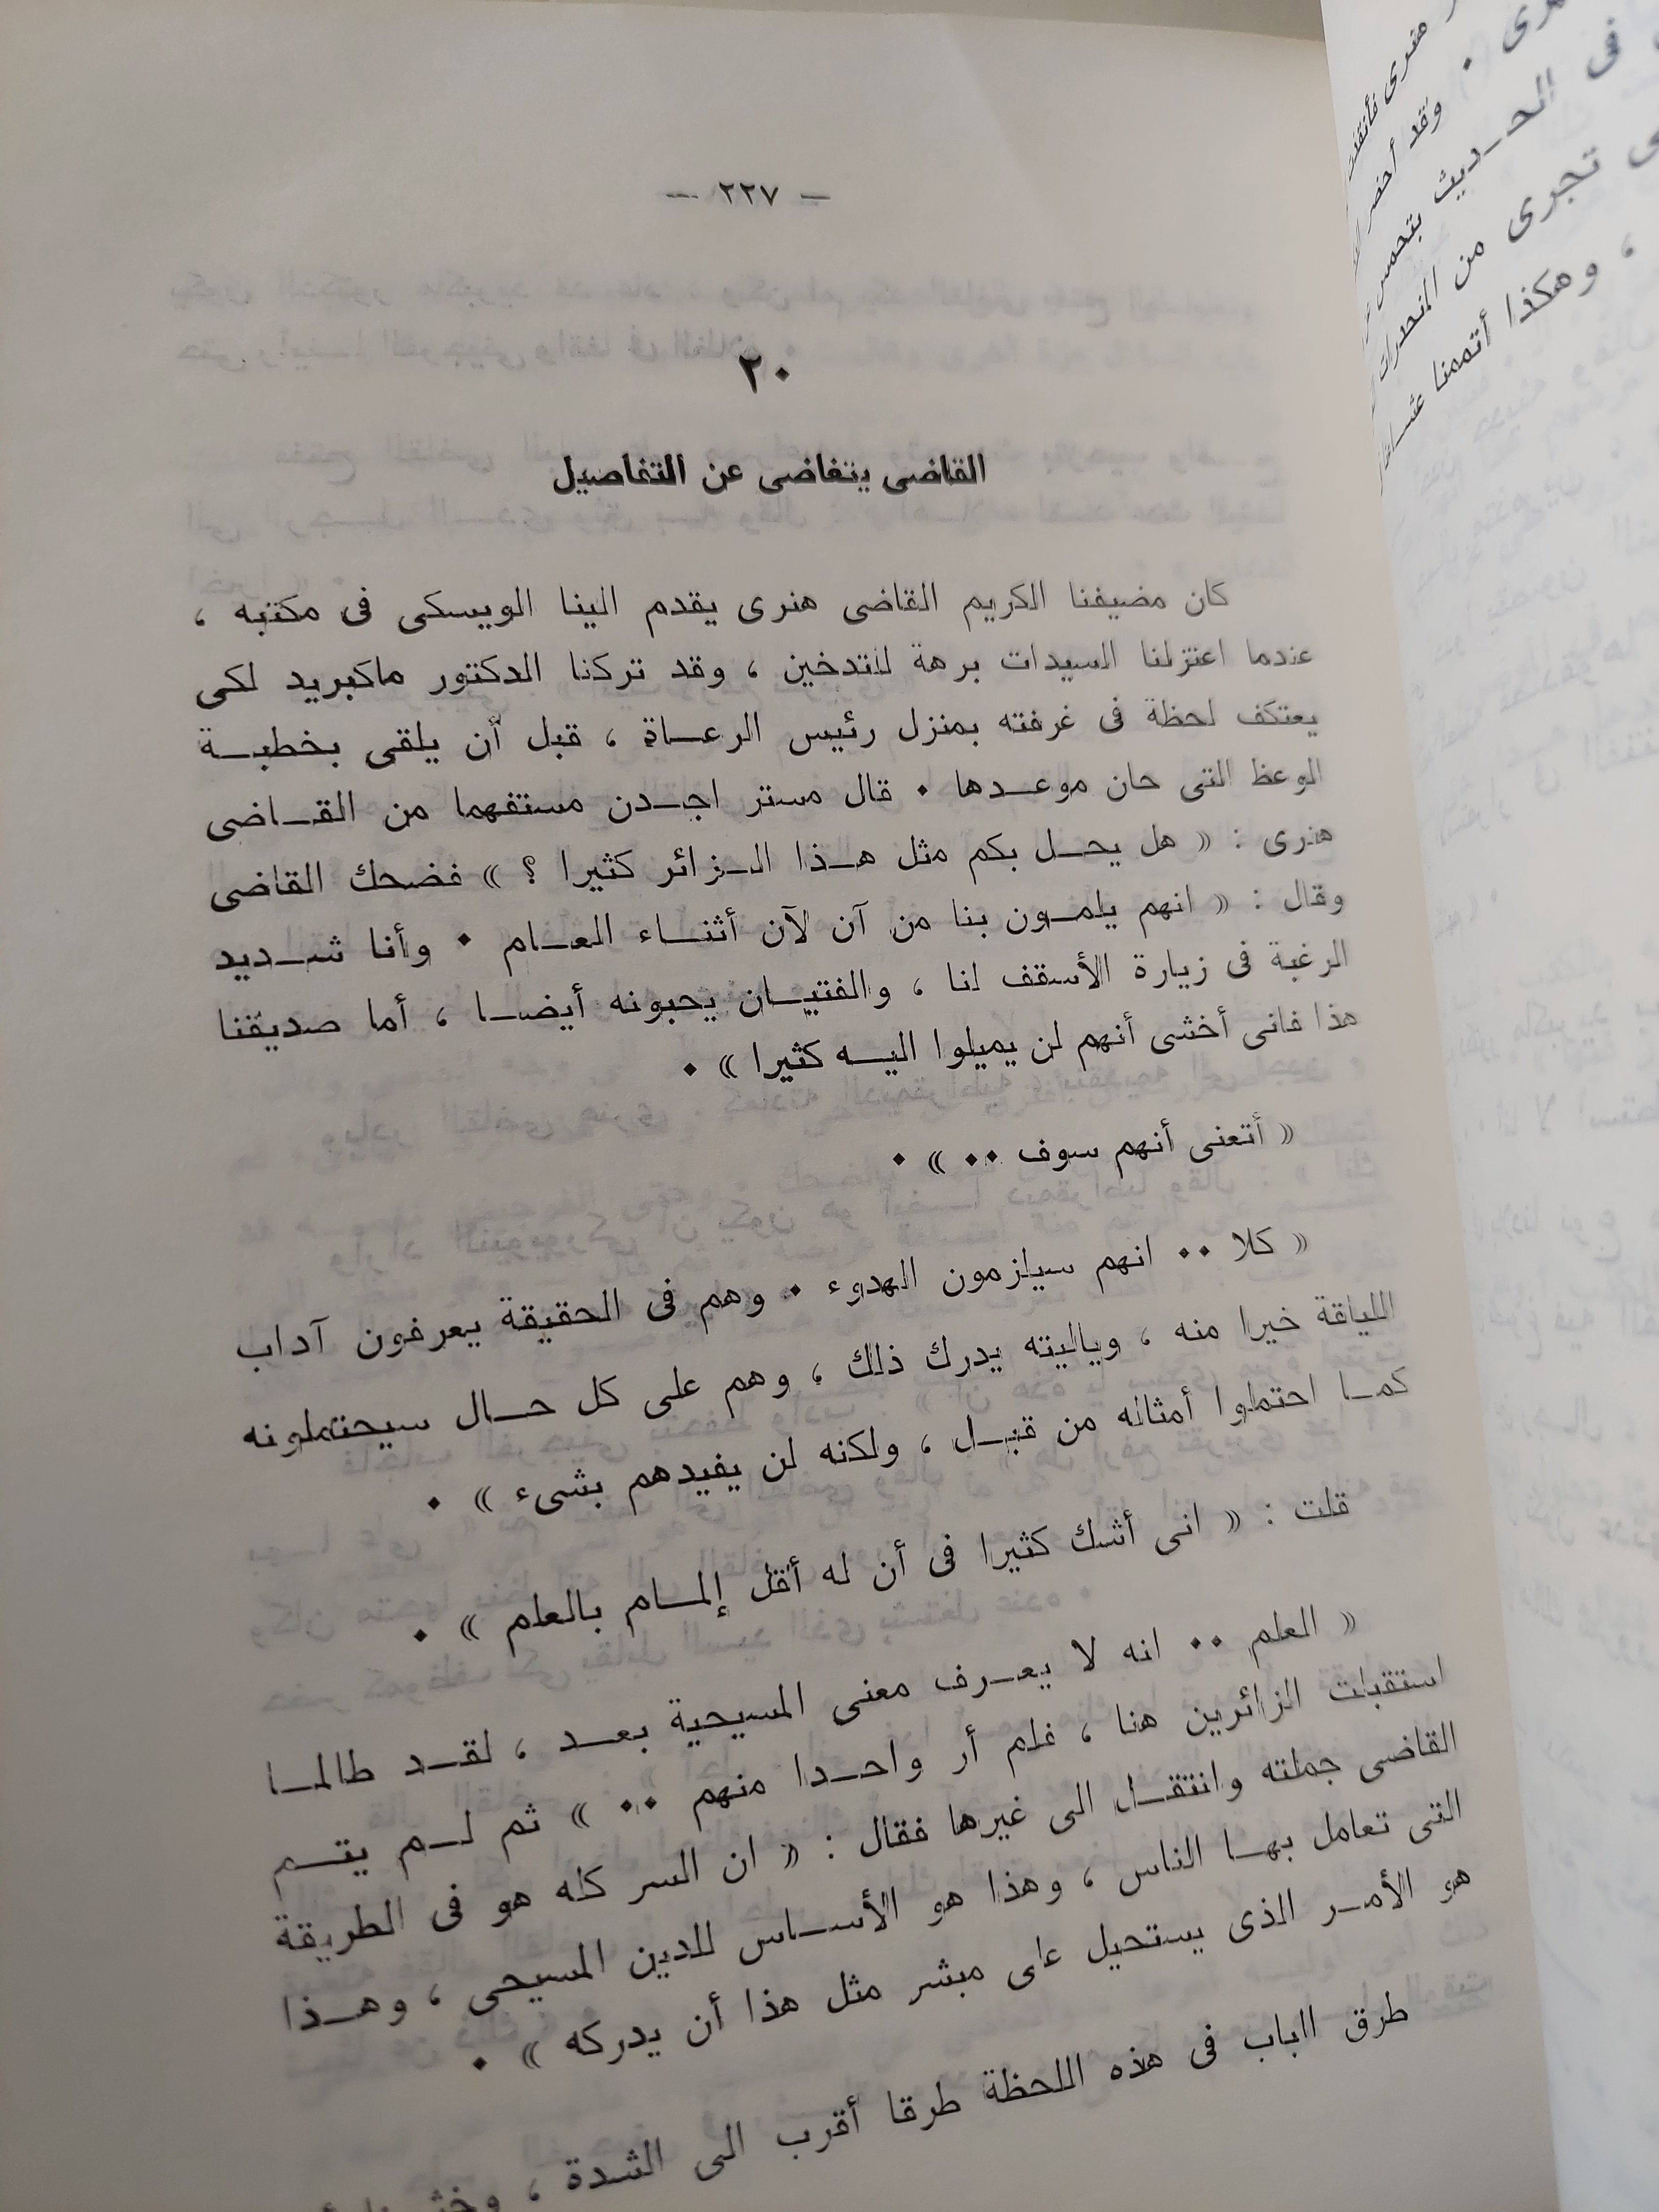 — ٢٢٧ —
٢٠
القاضى يتغاضى عن التفاصيل
كان مضيفنا الكريم القاضى هنرى يقدم الينا الويسكى فى مكتبه ،
عندما اعتزلنا السيدات برهة للتدخين ، وقد تركنا الدكتور ماكبريد لكى
يعتكف لحظة فى غرفته بمنزل رئيس الرعــاة ، قبل أن يلقى بخطبــة
الوعظ التى حان موعـدها • قال مستر اجـدن مستفهما من القـاضى
هنرى : « هل يحـل بكم مثل هـذا الـزائر كثيرا ؟ » فضحك القاضى
وقال : « انهم يلمـون بنا من آن لآن أثنـاء العـام • وأنا شـديد
الرغبة فى زيارة الأسقف لنا ، والفتيـان يحبونه أيضـا ، أما صديقنا
هذا فانى أخشى أنهم لن يميلوا اليـه كثيرا » •
« أتعنى أنهم سوف •• » •
« كلا •• انهم سيلزمون الهدوء • وهم فى الحقيقة يعرفون آداب
اللياقة خيرا منه ، وياليته يدرك ذلك ، وهم على كل حـال سيحتملونه
كمـا احتملوا أمثاله من قبـل ، ولكنه لن يفيدهم بشىء » •
قلت : « انى أشك كثيرا فى أن له أقل إلمـام بالعلم » •
« العلم •• انه لا يعـرف معنى المسيحية بعـد ، لقـد طالمـا
استقبلت الزائرين هنا ، فلم أر واحـدا منهم •• » ثم لـم يتـم
القاضى جملته وانتقـل الى غيرها فقال : « ان السر كله هو فى الطريقة
التى تعامل بهـا الناس ، وهذا هو الأسـاس للدين المسيحى ، وهـذا
هو الأمـر الذى يستحيل على مبشر مثل هذا أن يدركه » •
طرق الباب فى هذه اللحظة طرقا أقرب الى الشدة ،
هنرى
وقد أحضر
فى الحـديث بتحمس
تجرى من المنحدرات
، وهكذا أتممنا